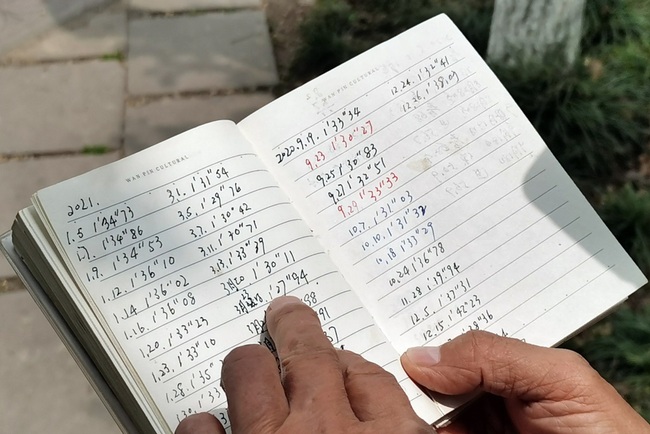 WAN PIN CULTURAL
2021.
1.5 1'34"73
1.7. 1'34"86
1.9. 1'34"53
1.12. 1'36"10
1.14. 1'36"02
1.16. 1'36"08
1.20. 1'33"23
1.23. 1'33"10
1.28. 1'35"
1.30. 1'33"
3.1. 1'31"54
3.5. 1'29"76
3.7. 1'30"42
3.11. 1'30"71
3.13. 1'33"39
3月20 1'30"11
1'27"94
88
91
WAN PIN CULTURAL
2020.9.9. 1'33"34
9.23 1'30"27
9.25 1'30"83
9.27 1'32"51
9.29 1'33"33
10.7. 1'31"03
10.10. 1'31"32
11.18 1'33"29
10.24 1'36"78
11.28 1'39"94
12.5. 1'37"31
12.15. 1'42"23
38"36
12.24. 1'32"41
12.26. 1'38.09